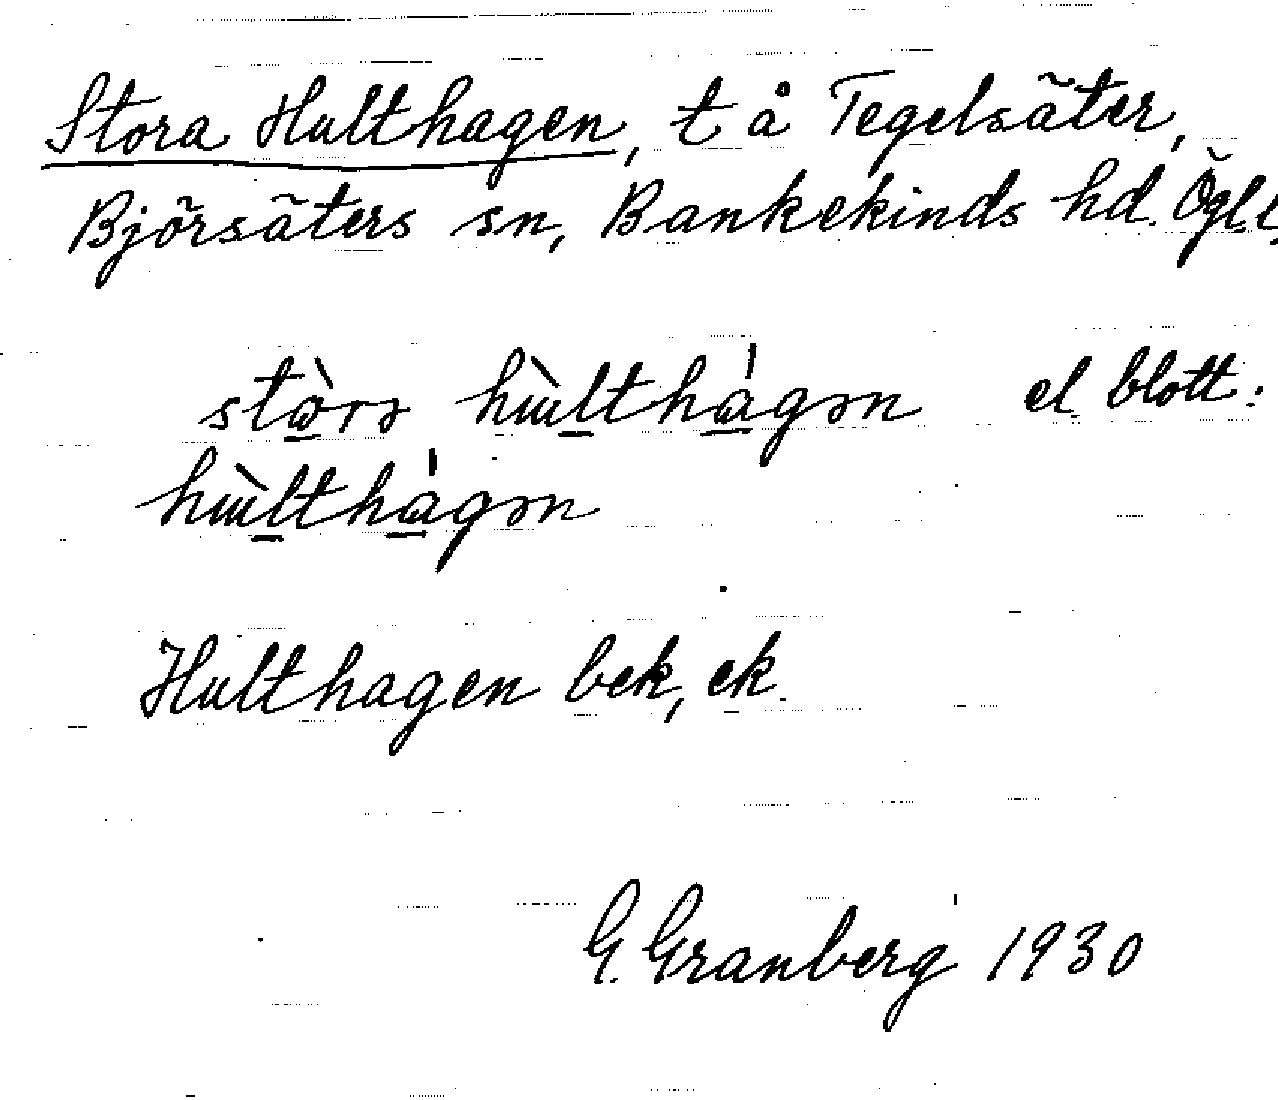 Stora Hulthagen, t å Tegelsäter,
Björsäters sn, Bankekinds hd. Ögl.
el blott:
Hulthagen bek, ek.
G. Granberg 1930